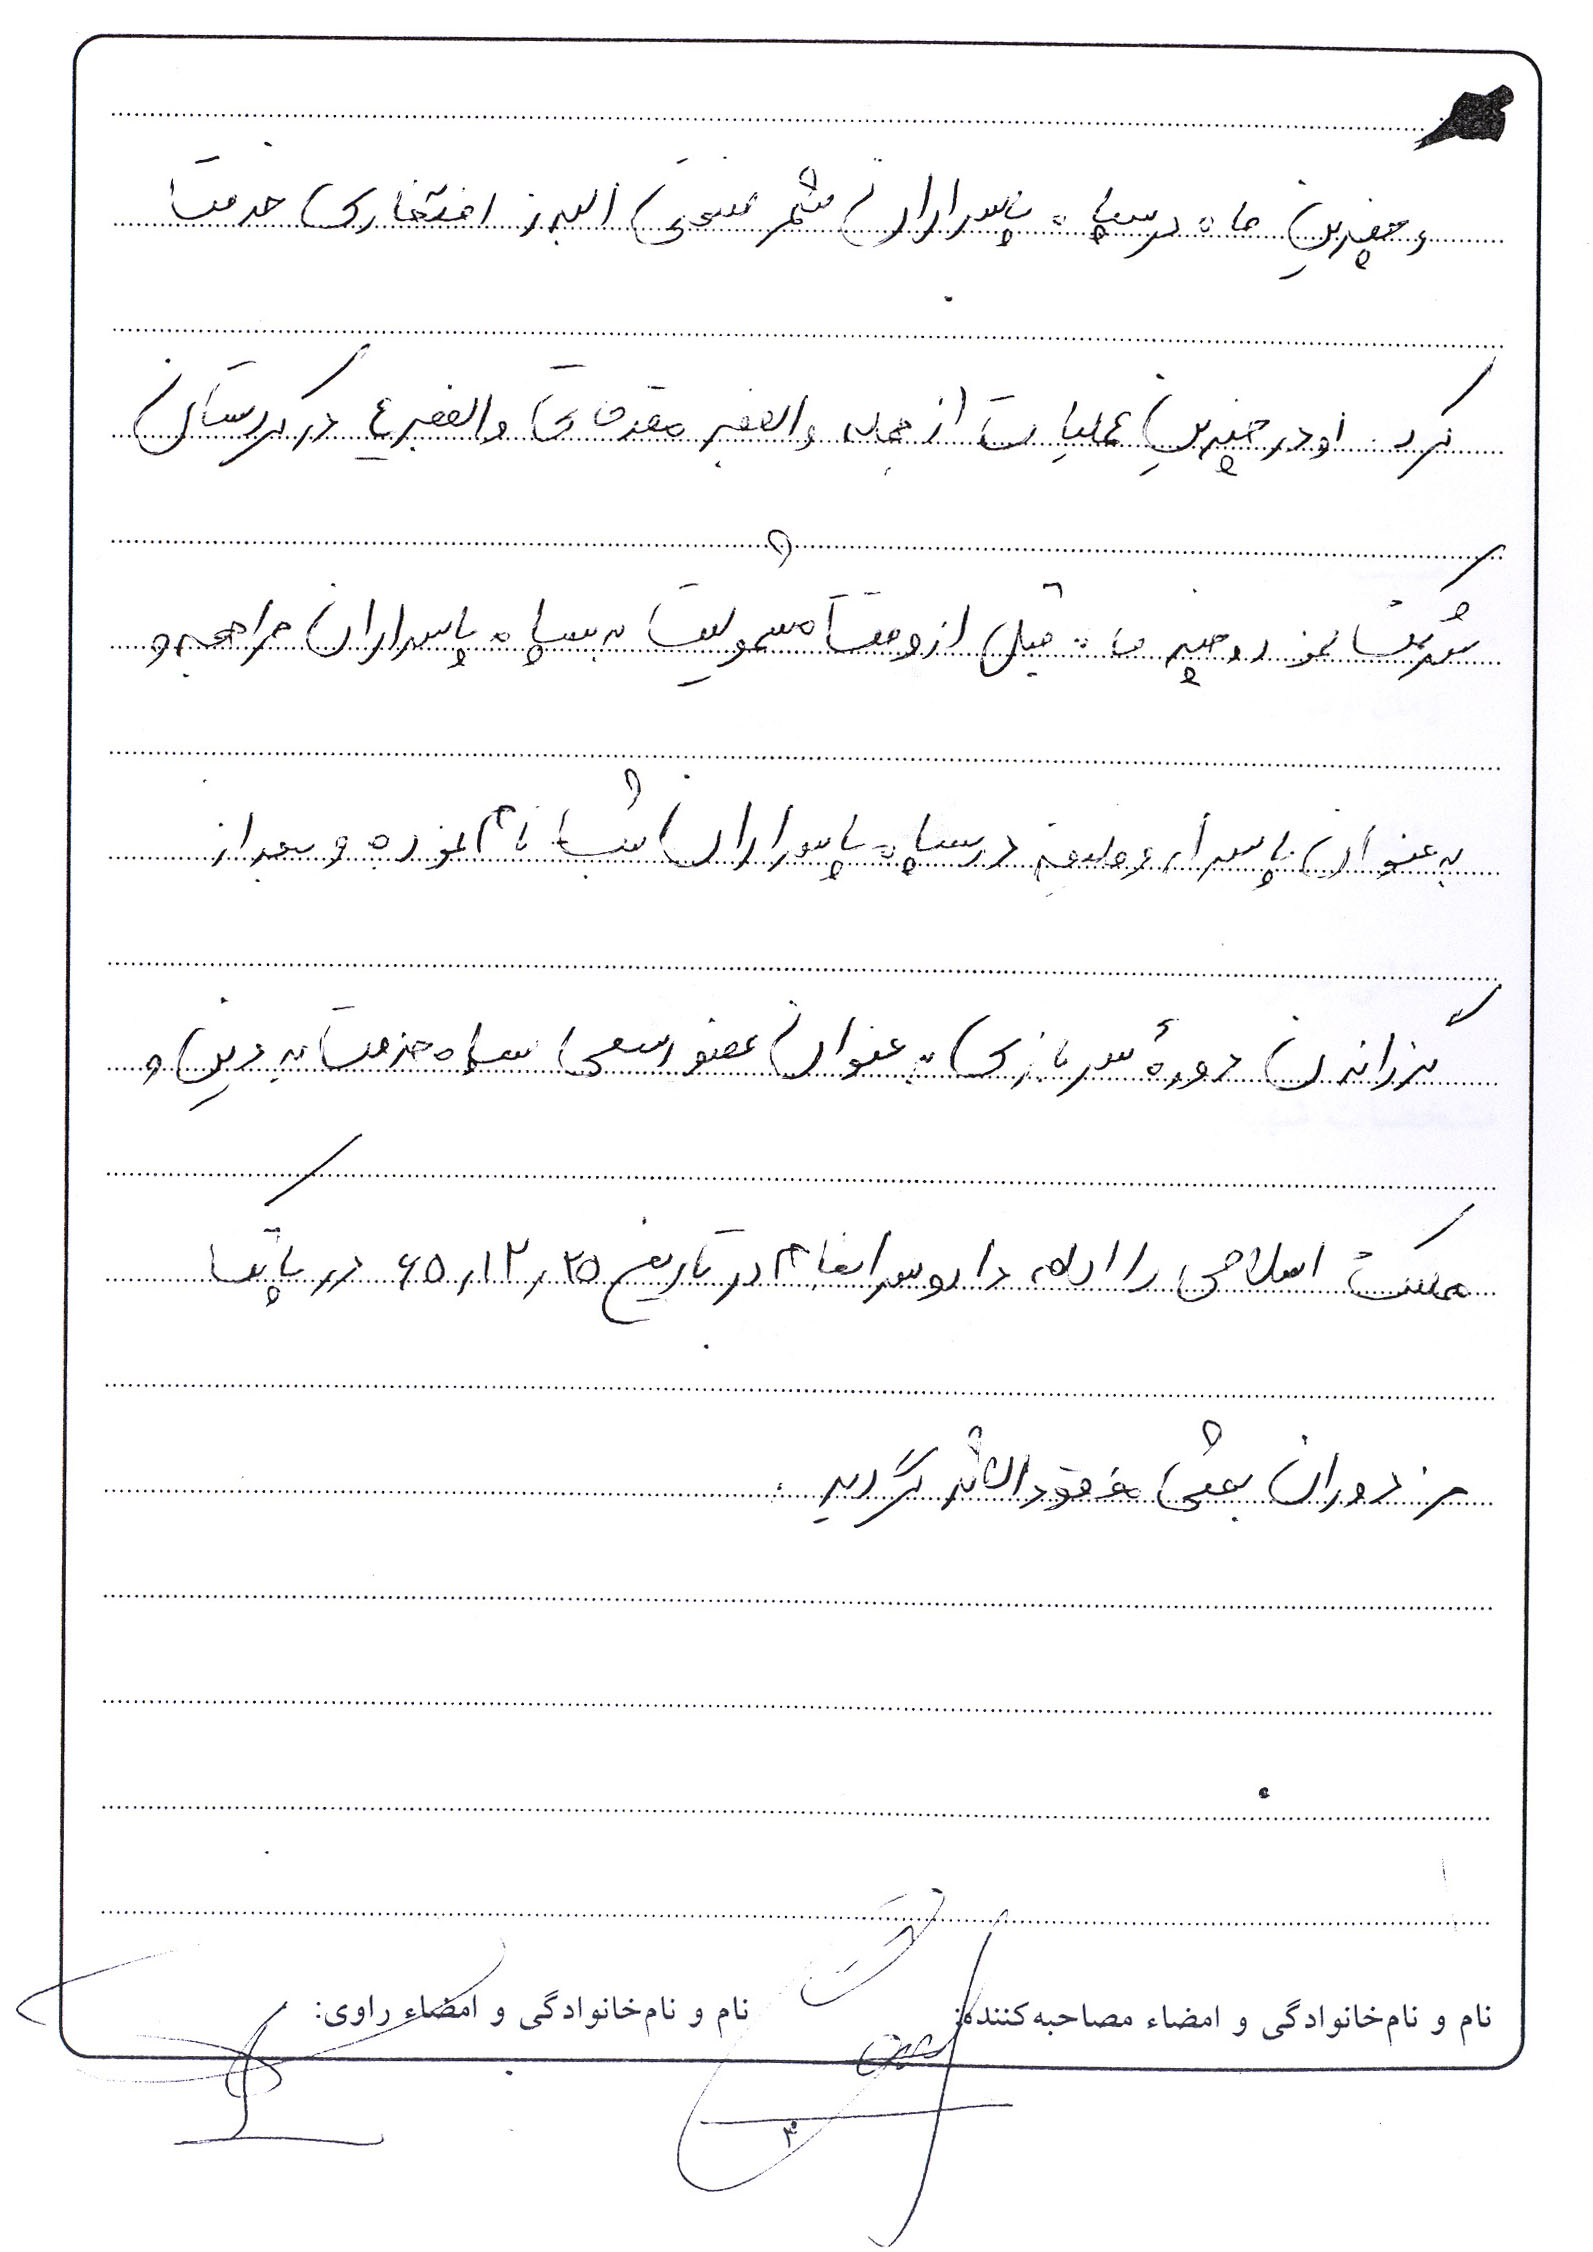 و چندین ماه در سپاه پاسداران شهر صنعتی البرز افتخاری خدمت
کرد. او در چندین عملیات از جمله والفجر مقدماتی والفجر ۴ در کردستان
شرکت نمود و چند ماه قبل از وقت مشمولیت به سپاه پاسداران مراجعه و
به عنوان پاسدار وظیفه در سپاه پاسداران ثبت نام نموده و بعد از
گذراندن دورهٔ سربازی به عنوان عضو رسمی سپاه خدمت به دین و
مملکت اسلامی را ادامه داد و سرانجام در تاریخ ۶۵٫۱۲٫۲۵ در پاتک
مزدوران بعثی مفقود الاثر گردید.
نام و نام‌خانوادگی و امضاء مصاحبه‌کننده:
نام و نام‌خانوادگی و امضاء راوی:
۳